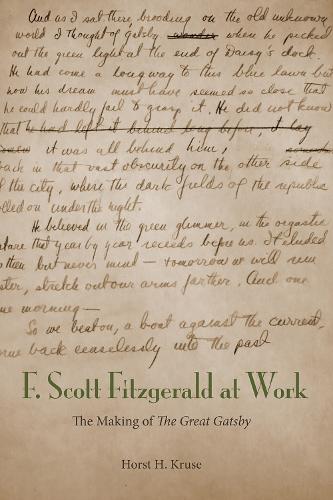 And as I sat there brooding on the old unknown
world I thought of Gatsby when he picked
out the green light at the end of Daisy's dock.
He had come a long way to this blue lawn but
now his dream must have seemed so close that
he could hardly fail to grasp it. He did not know
that he had left it behind long before,
it was all behind him,
back in that vast obscurity on the other side
f the city, where the dark fields of the republic
olled on under the night.
He believed in the green glimmer, in the orgastic
uture that year by year recedes before us. It eluded
s then but never mind — tomorrow we will run
ster, stretch out our arms farther. And one
ne morning —
So we beat on, a boat against the current,
rne back ceaselessly into the past
F. Scott Fitzgerald at Work
The Making of The Great Gatsby
Horst H. Kruse